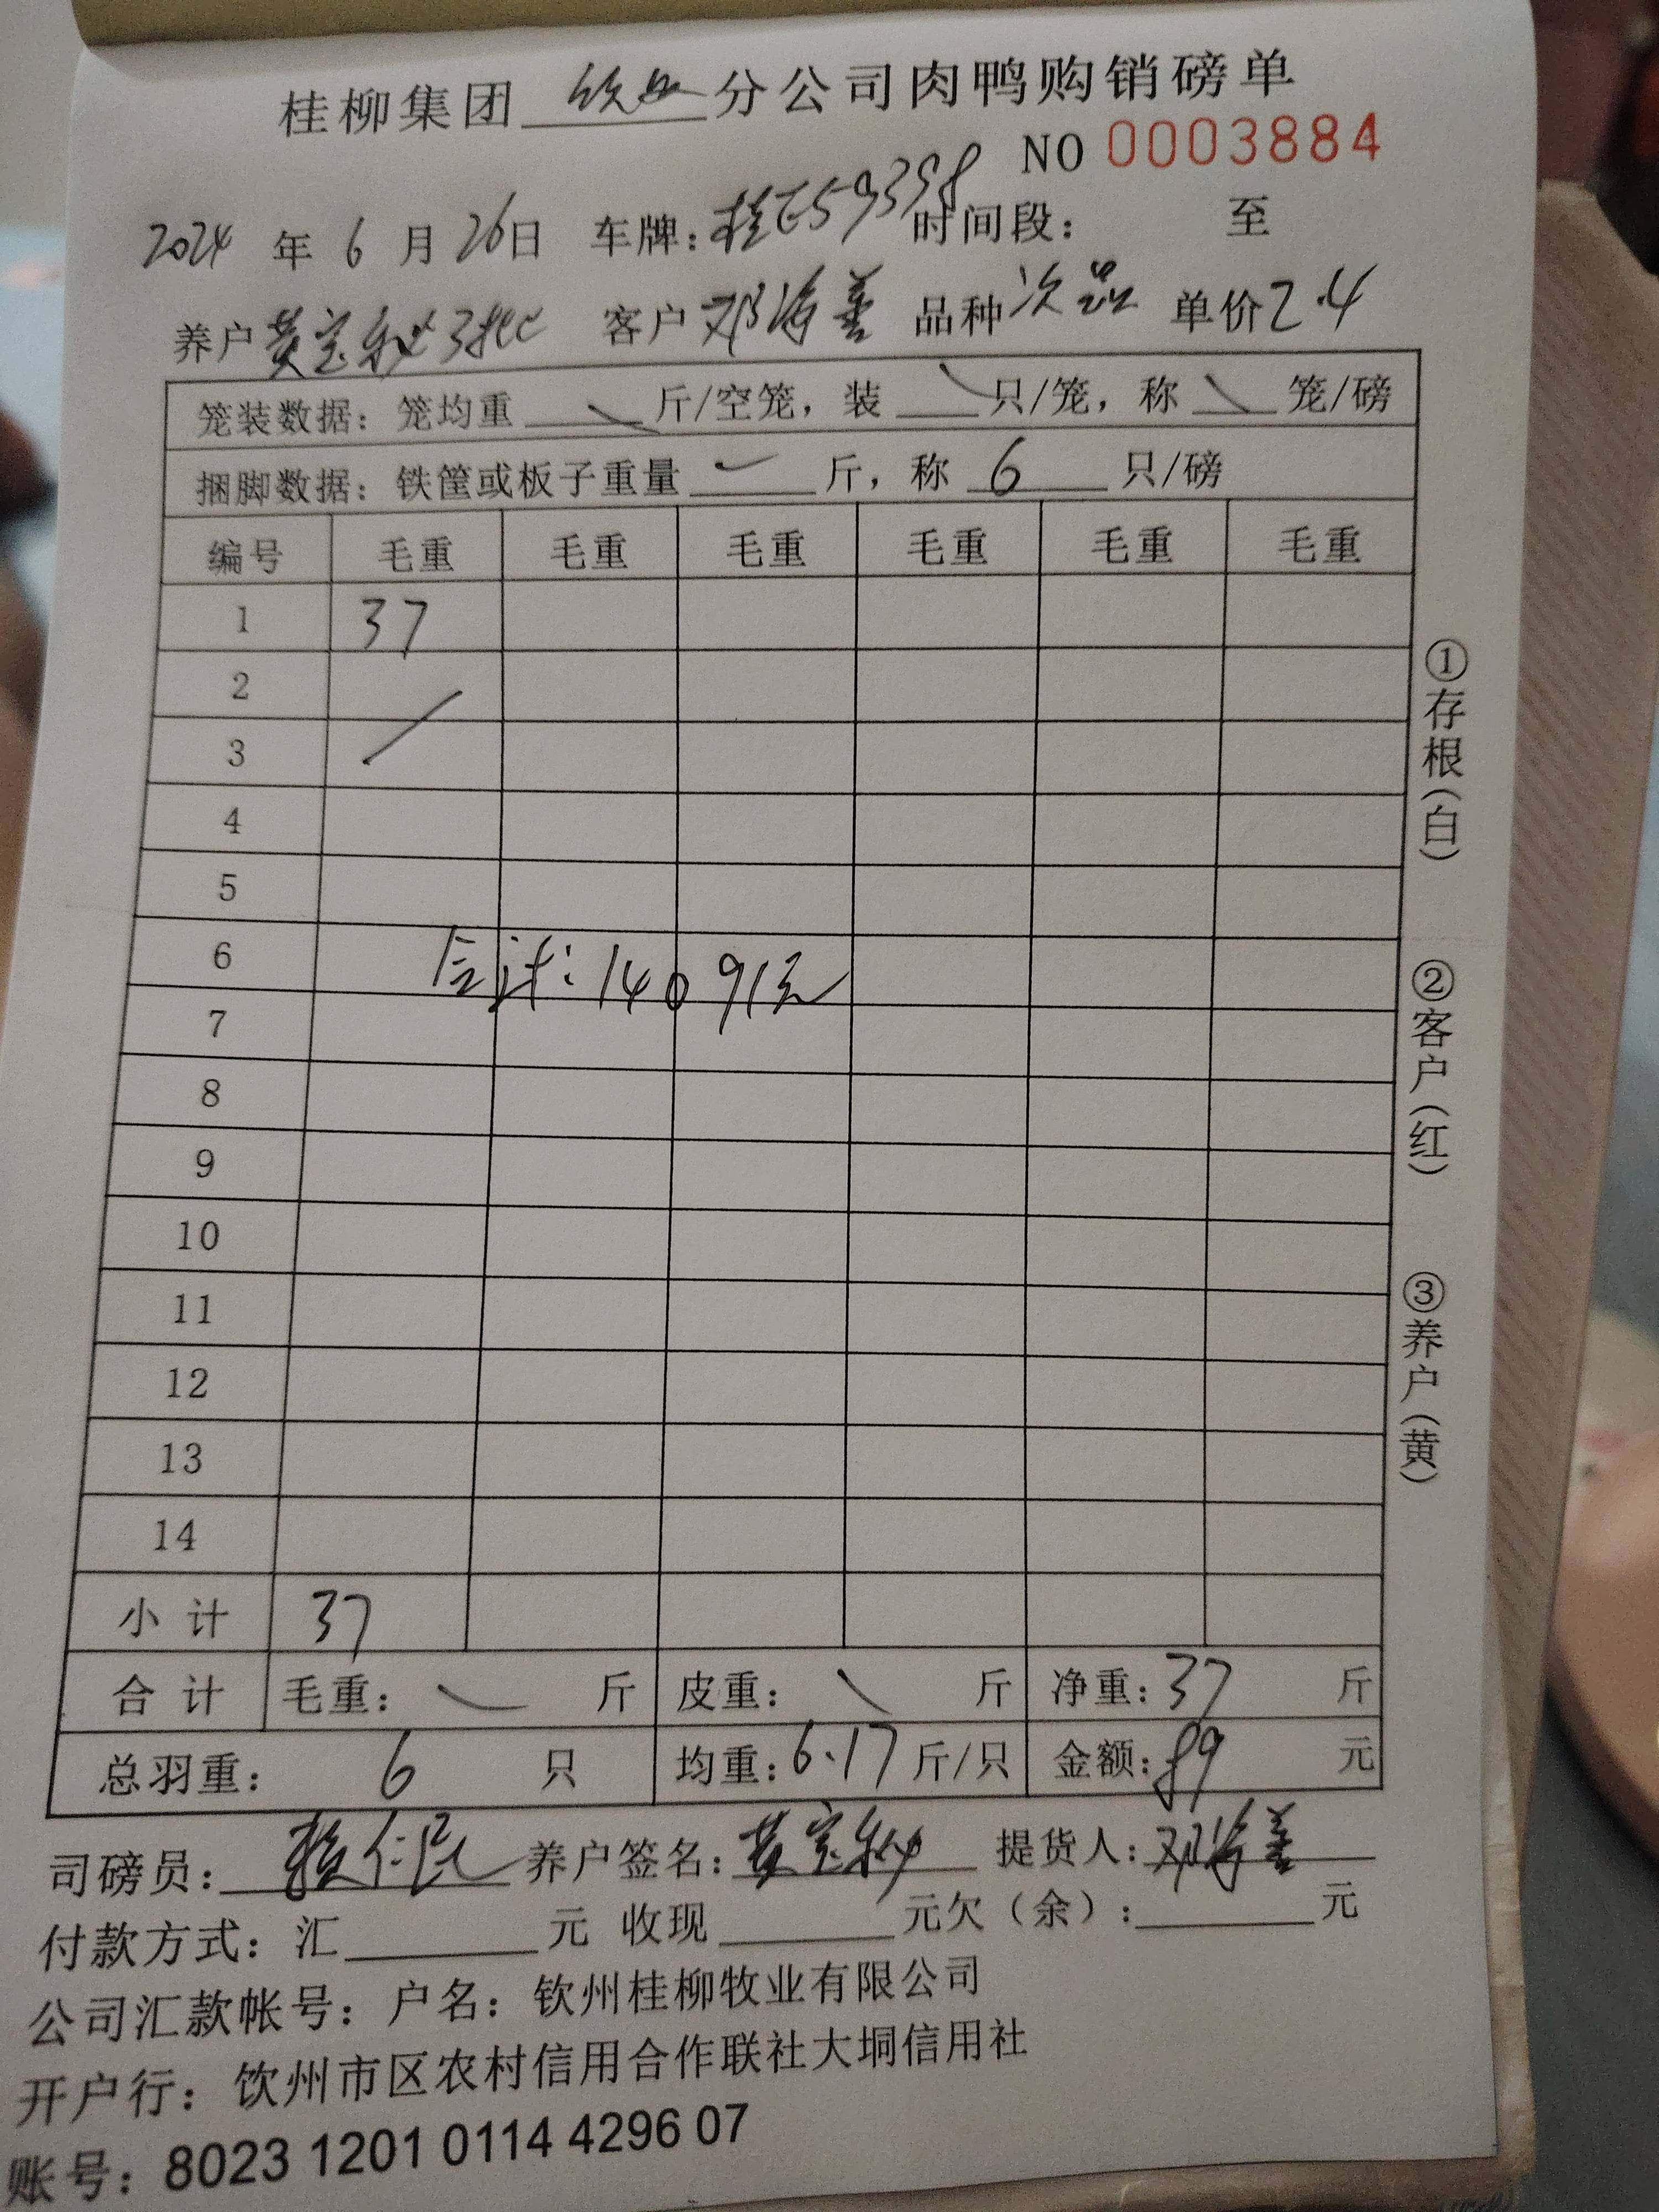 桂柳集团 钦州 分公司肉鸭购销磅单
NO 0003884
2024 年 6 月 26日 车牌: 桂E59398 时间段: 至
养户 黄宝 3批 客户 邓海善 品种 次品 单价 2.4
笼装数据: 笼均重 斤/空笼, 装 只/笼, 称 笼/磅
捆脚数据: 铁筐或板子重量 斤, 称 6 只/磅
编号 毛重 毛重 毛重 毛重 毛重 毛重
1 37
2
3
4
5
6
合计: 14091元
7
8
9
10
11
12
13
14
小计 37
合计 毛重: 斤 皮重: 斤 净重: 37 斤
总羽重: 6 只 均重: 6.17 斤/只 金额: 89 元
司磅员: 仁民 养户签名: 黄宝 提货人: 邓海善
付款方式: 汇 元 收现 元欠(余): 元
公司汇款帐号: 户名: 钦州桂柳牧业有限公司
开户行: 钦州市区农村信用合作联社大垌信用社
账号: 8023 1201 0114 4296 07
①存根(白)
②客户(红)
③养户(黄)